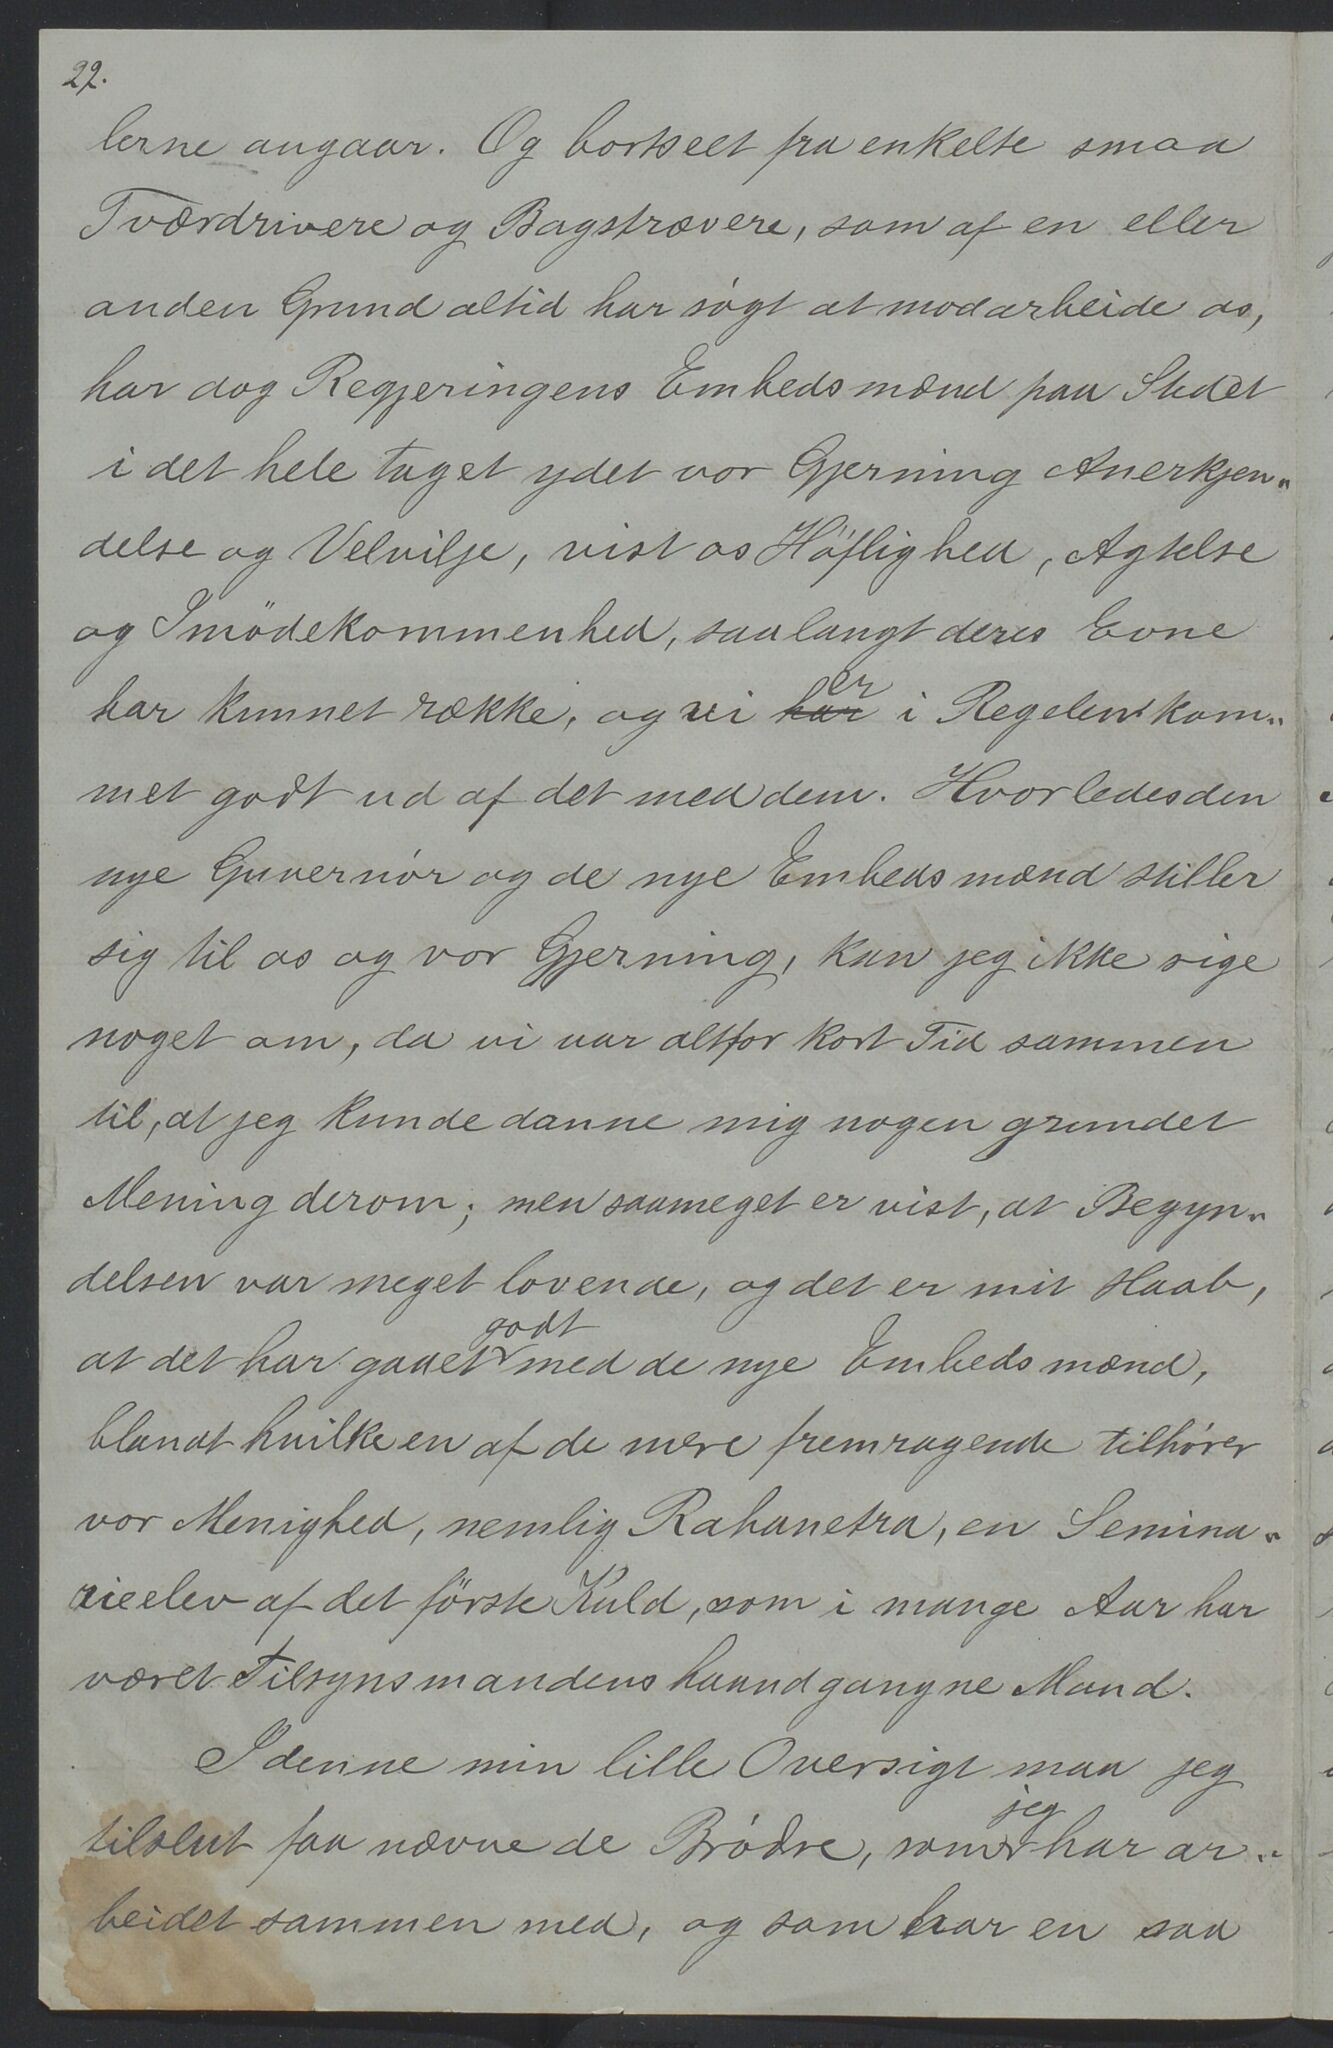 22.
lerne angaar. Og bortseet fra enkelte smaa
Tværdrivere og Bagstrævere, som af en eller
anden Grund altid har søgt at modarbeide os,
har dog Regjeringens Embedsmænd paa Stedet
i det hele taget ydet vor Gjerning Anerkjen„
delse og Velvilje, vist os Høflighed, Agtelse
og Imödekommenhed, saalangt deres Evne
er
har kunnet række, og vi har i Regelen kom„
met godt ud af det med dem. Hvorledes den
nye Guvernør og de nye Embedsmænd stiller
sig til os og vor Gjerning, kan jeg ikke sige
noget om, da vi var altfor kort Tid sammen
til, at jeg kunde danne mig nogen grundet
Mening derom; men saameget er vist, at Begyn„
delsen var meget lovende, og det er mit Haab,
godt
at det har gaaet med de nye Embedsmænd,
blandt hvilke en af de mere fremragende tilhører
vor Menighed, nemlig Rahanetra, en Semina„
rieelev af det förste Kuld, som i mange Aar har
været Tilsynsmandens haandgangne Mand.
I denne min lille Oversigt maa jeg
jeg
tilslut faa nævne de Brødre, som har ar„
beidet sammen med, og som har en saa